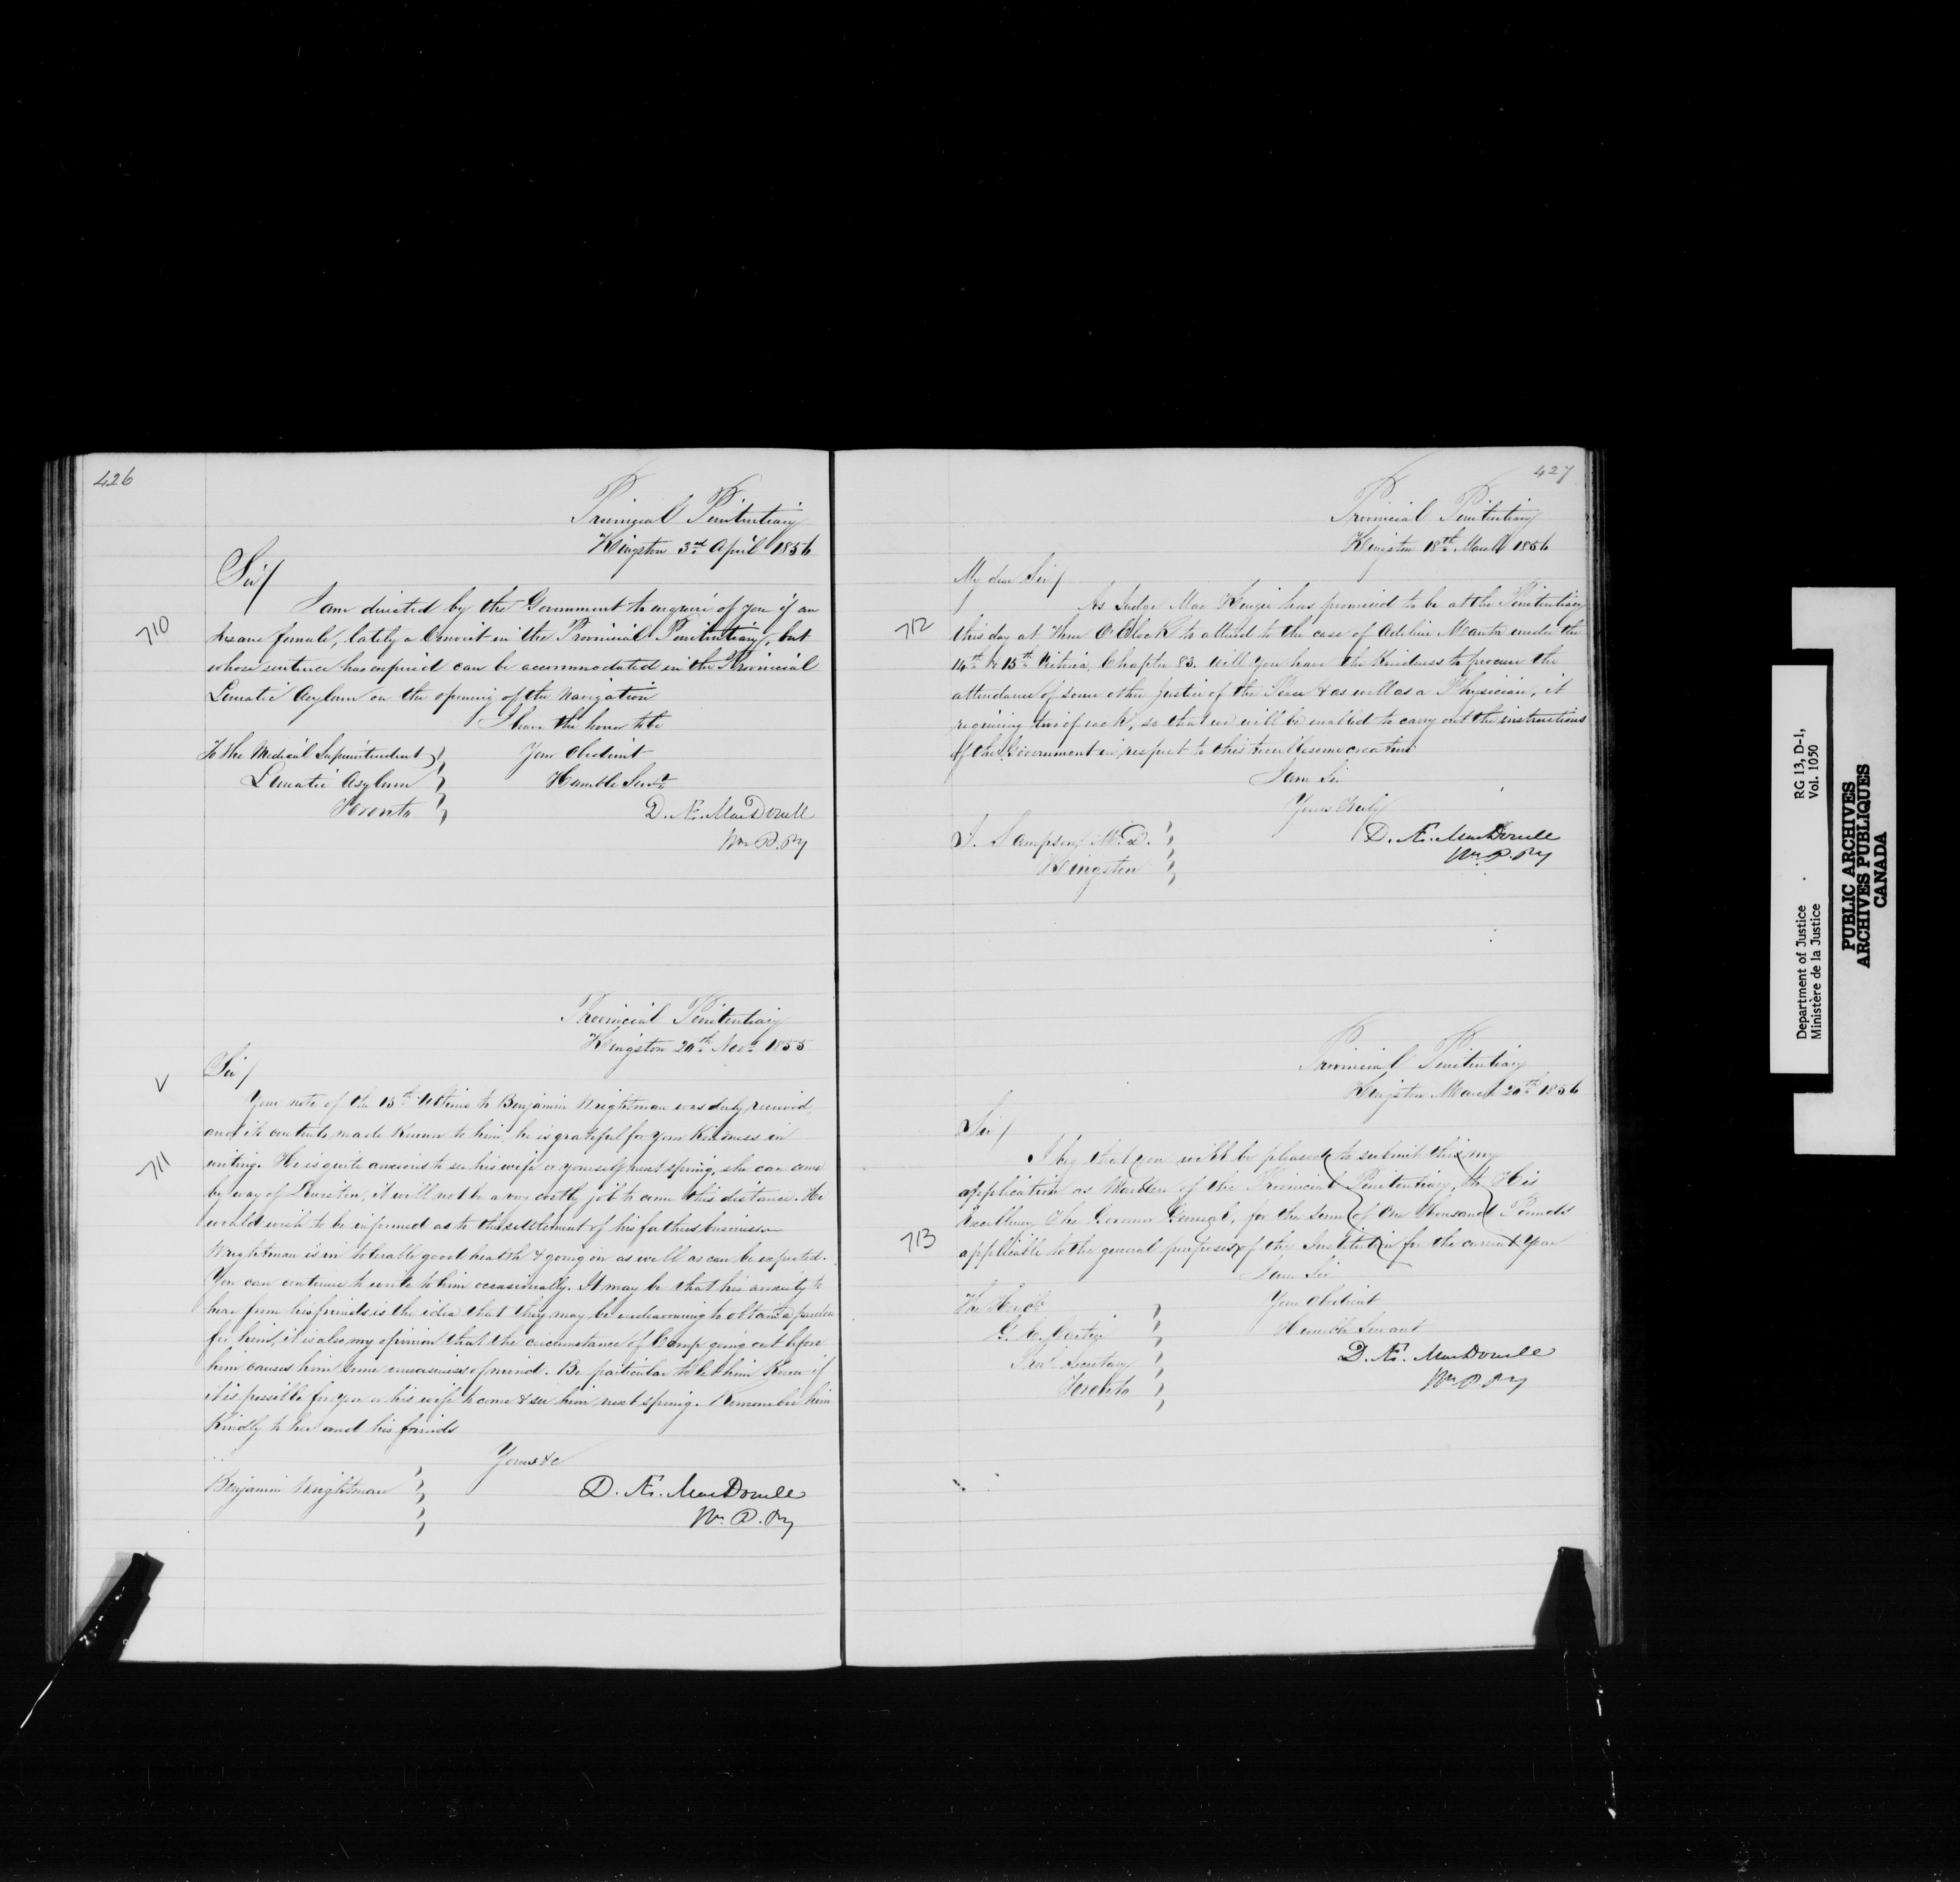 426
Provincial Penitentiary
Kingston 3rd April 1856
Sir/
710
I am directed by the Government to enquire of you if an
Insane female, lately a Convict in the Provincial Penitentiary, but
whose sentence has expired can be accommodated in the Provincial
Lunatic Asylum on the opening of the Navigation
I have the honor to be
To the Medical Superintendent
Your Obedient
Lunatic Asylum
Humble Servt
Toronto
D. Æ. MacDonell
Wn P. Py
Provincial Penitentiary
Kingston 20th Novr 1855
Sir/
711
Your note of the 15th Ultimo to Benjamin Wrightman was duly received,
and its contents made Known to him, he is grateful for your Kindness in
writing. He is quite anxious to see his wife or yourself next spring, she can come
by way of Lewiston, it will not be a very costly job to come this distance. He
would wish to be informed as to the settlement of his fathers business
Wrightman is in tolerable good health & going on as well as can be expected.
You can continue to write to him occasionally. It may be that his anxiety to
hear from his friends is the idea that they may be endeavouring to obtain a pardon
for him, it is also my opinion that the circumstance of Camp going out before
him causes him some uneasiness of mind. Be particular to let him Know if
it is possible for you or his wife to come & see him next spring. Remember him
Kindly to her and his friends
Yours &c
Benjamin Wrightman
D. Æ. MacDonell
Wn. P. Py
427
Provincial Penitentiary
Kingston 18th March 1856
My dear Sir/
712
As Judge Mac Kenzie has promised to be at the Penitentiary
this day at Three O'Clock to attend to the case of Adeline Manta under the
14th & 15th Victoria, Chapter 83. Will you have the Kindness to procure the
attendance of some other Justice of the Peace & as well as a Physician, it
requiring two of each, so that we will be enabled to carry out the instructions
of the Government in respect to this troublesome creature
I am Sir
Yours Truly
J. Sampson, M.D.
D. Æ. MacDonell
Kingston
Wn. P. Py
Provincial Penitentiary
Kingston March 20th 1856
Sir/
713
I beg that you will be pleased to submit this my
application as Warden of the Provincial Penitentiary, to His
Excellency The Governor General, for the Sum of One Thousand Pounds
applicable to the general purposes of the Institution for the current Year
I am Sir
The Honble
Your Obedient
G. E. Cartier
Humble Servant
Provl Secretary
D. Æ. MacDonell
Toronto
Wn P. Py
Department of Justice
Ministère de la Justice
RG 13, D-1,
Vol. 1050
PUBLIC ARCHIVES
ARCHIVES PUBLIQUES
CANADA